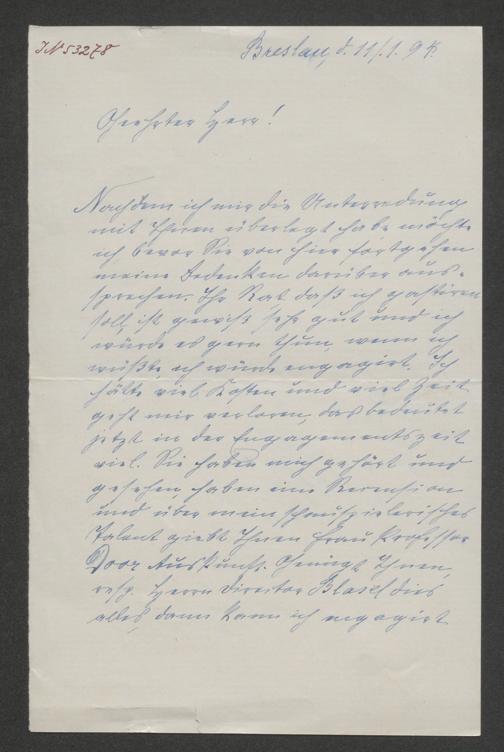 JN 53278
Breslau, d. 11/1. 94.
Geehrter Herr!
Nachdem ich mir die Unterredung
mit Ihnen überlegt habe möchte
ich bevor Sie von hier fortgehen
meine Bedenken darüber aus-
sprechen. Ihr Rat, daß ich gastiren
soll, ist gewiß sehr gut und ich
würde es gern thun, wenn ich
wüßte, ich würde engagirt. Ich
hätte viel Kosten und viel Zeit
geht mir verloren, das bedeutet
jetzt in der Engagementszeit
viel. Sie haben mich gehört und
gesehen, haben eine Recension
und über mein schauspielerisches
Talent giebt Ihnen Frau Professor
Door Auskunft. Genügt Ihnen,
resp. Herrn Director Blasel dies
alles, dann kann ich engagirt